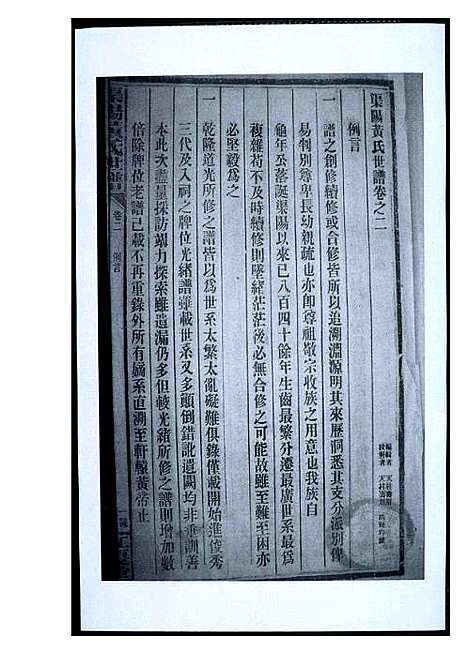 渠陽黃氏世譜卷之二
例言
一 譜之創修續修或合修皆所以追溯淵源明其來歷洞悉其支分派別俾
易判別尊卑長幼親疏也亦卽尊祖敬宗收族之用意也我族自
龜年公落誕渠陽以來已八百四十餘年生齒最繁分遷最廣世系最爲
複雜苟不及時續修則墜緒茫茫後必無合修之可能故雖至難至困亦
必堅毅爲之
一 乾隆道光所修之譜皆以爲世系太繁太亂礙難俱錄僅載開始進俊秀
三代及入祠之牌位光緒譜雖載世系又多顛倒錯訛遺闕均非垂訓善
本此次盡量採訪竭力探索雖遺漏仍多但較光緒所修之譜則增加數
倍除牌位老譜已載不再重錄外所有嫡系直溯至軒轅黃帝止
卷二 例言